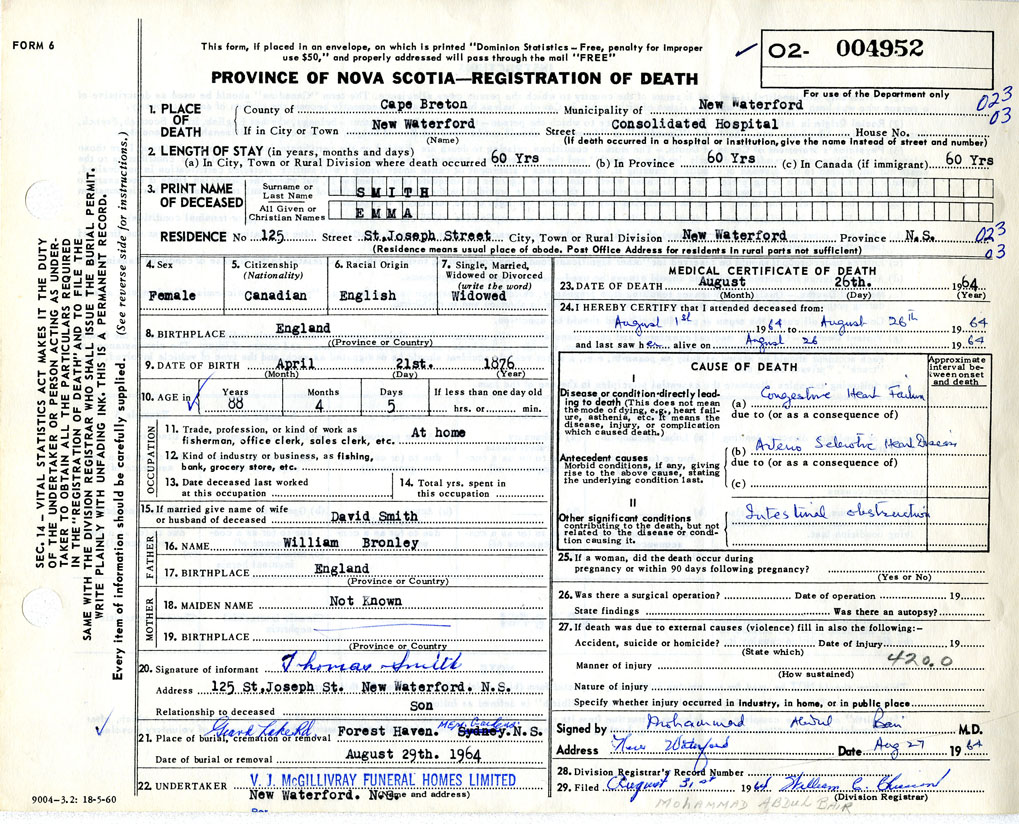 FORM 6
This form, if placed in an envelope, on which is printed "Dominion Statistics – Free, penalty for improper
use $50," and properly addressed will pass through the mail "FREE"
PROVINCE OF NOVA SCOTIA—REGISTRATION OF DEATH
✓ 02- 004952
For use of the Department only
023
03
1. PLACE OF DEATH
County of Cape Breton Municipality of New Waterford
If in City or Town New Waterford Street Consolidated Hospital House No.
(Name) (If death occurred in a hospital or institution, give the name instead of street and number)
2. LENGTH OF STAY (in years, months and days)
(a) In City, Town or Rural Division where death occurred 60 Yrs (b) In Province 60 Yrs (c) In Canada (if immigrant) 60 Yrs
3. PRINT NAME OF DECEASED
Surname or Last Name SMITH
All Given or Christian Names EMMA
RESIDENCE No 125 Street St.Joseph Street City, Town or Rural Division New Waterford Province N.S. 023
03
(Residence means usual place of abode. Post Office Address for residents in rural parts not sufficient)
4. Sex
Female
5. Citizenship
(Nationality)
Canadian
6. Racial Origin
English
7. Single, Married,
Widowed or Divorced
(write the word)
Widowed
8. BIRTHPLACE England
((Province or Country)
9. DATE OF BIRTH April 21st. 1876
(Month) (Day) (Year)
10. AGE in ✓
Years 88
Months 4
Days 5
If less than one day old
hrs. or min.
OCCUPATION
11. Trade, profession, or kind of work as
fisherman, office clerk, sales clerk, etc. At home
12. Kind of industry or business, as fishing,
bank, grocery store, etc.
13. Date deceased last worked
at this occupation
14. Total yrs. spent in
this occupation
15. If married give name of wife
or husband of deceased David Smith
FATHER
16. NAME William Bronley
17. BIRTHPLACE England
(Province or Country)
MOTHER
18. MAIDEN NAME Not Known
19. BIRTHPLACE
(Province or Country)
20. Signature of informant Thomas Smith
Address 125 St.Joseph St. New Waterford. N.S.
Relationship to deceased Son
✓
21. Place of burial, cremation or removal Forest Haven. Mem. Gardens Sydney. N.S.
Date of burial or removal August 29th. 1964
22. UNDERTAKER V. J. McGILLIVRAY FUNERAL HOMES LIMITED
New Waterford. N.S. (Name and address)
9004–3.2: 18-5-60
MEDICAL CERTIFICATE OF DEATH
23. DATE OF DEATH August 26th. 1964
(Month) (Day) (Year)
24. I HEREBY CERTIFY that I attended deceased from:
August 1st 1964 to August 26th 1964
and last saw her alive on August 26 1964
CAUSE OF DEATH
Approximate
interval be-
tween onset
and death
I
Disease or condition directly lead-
ing to death (This does not mean
the mode of dying, e.g., heart fail-
ure, asthenia, etc. It means the
disease, injury, or complication
which caused death.)
(a) Congestive Heart Failure
due to (or as a consequence of)
(b) Arterio Sclerotic Heart Disease
Antecedent causes
Morbid conditions, if any, giving
rise to the above cause, stating
the underlying condition last.
due to (or as a consequence of)
(c)
II
Other significant conditions
contributing to the death, but not
related to the disease or condi-
tion causing it.
Intestinal obstruction
25. If a woman, did the death occur during
pregnancy or within 90 days following pregnancy?
(Yes or No)
26. Was there a surgical operation? Date of operation 19
State findings Was there an autopsy?
27. If death was due to external causes (violence) fill in also the following:-
Accident, suicide or homicide? Date of injury 19
(State which)
420.0
Manner of injury
(How sustained)
Nature of injury
Specify whether injury occurred in industry, in home, or in public place
Signed by Mohammad Abdul Bari M.D.
Address New Waterford Date Aug 27 1964
28. Division Registrar's Record Number
29. Filed August 31st 1964 William C.
(Division Registrar)
MOHAMMAD ABDUL BAIR
SEC. 14 – VITAL STATISTICS ACT MAKES IT THE DUTY
OF THE UNDERTAKER OR PERSON ACTING AS UNDER-
TAKER TO OBTAIN ALL THE PARTICULARS REQUIRED
IN THE "REGISTRATION OF DEATH" AND TO FILE THE
SAME WITH THE DIVISION REGISTRAR WHO SHALL ISSUE THE BURIAL PERMIT.
WRITE PLAINLY WITH UNFADING INK. THIS IS A PERMANENT RECORD.
Every item of information should be carefully supplied. (See reverse side for instructions.)